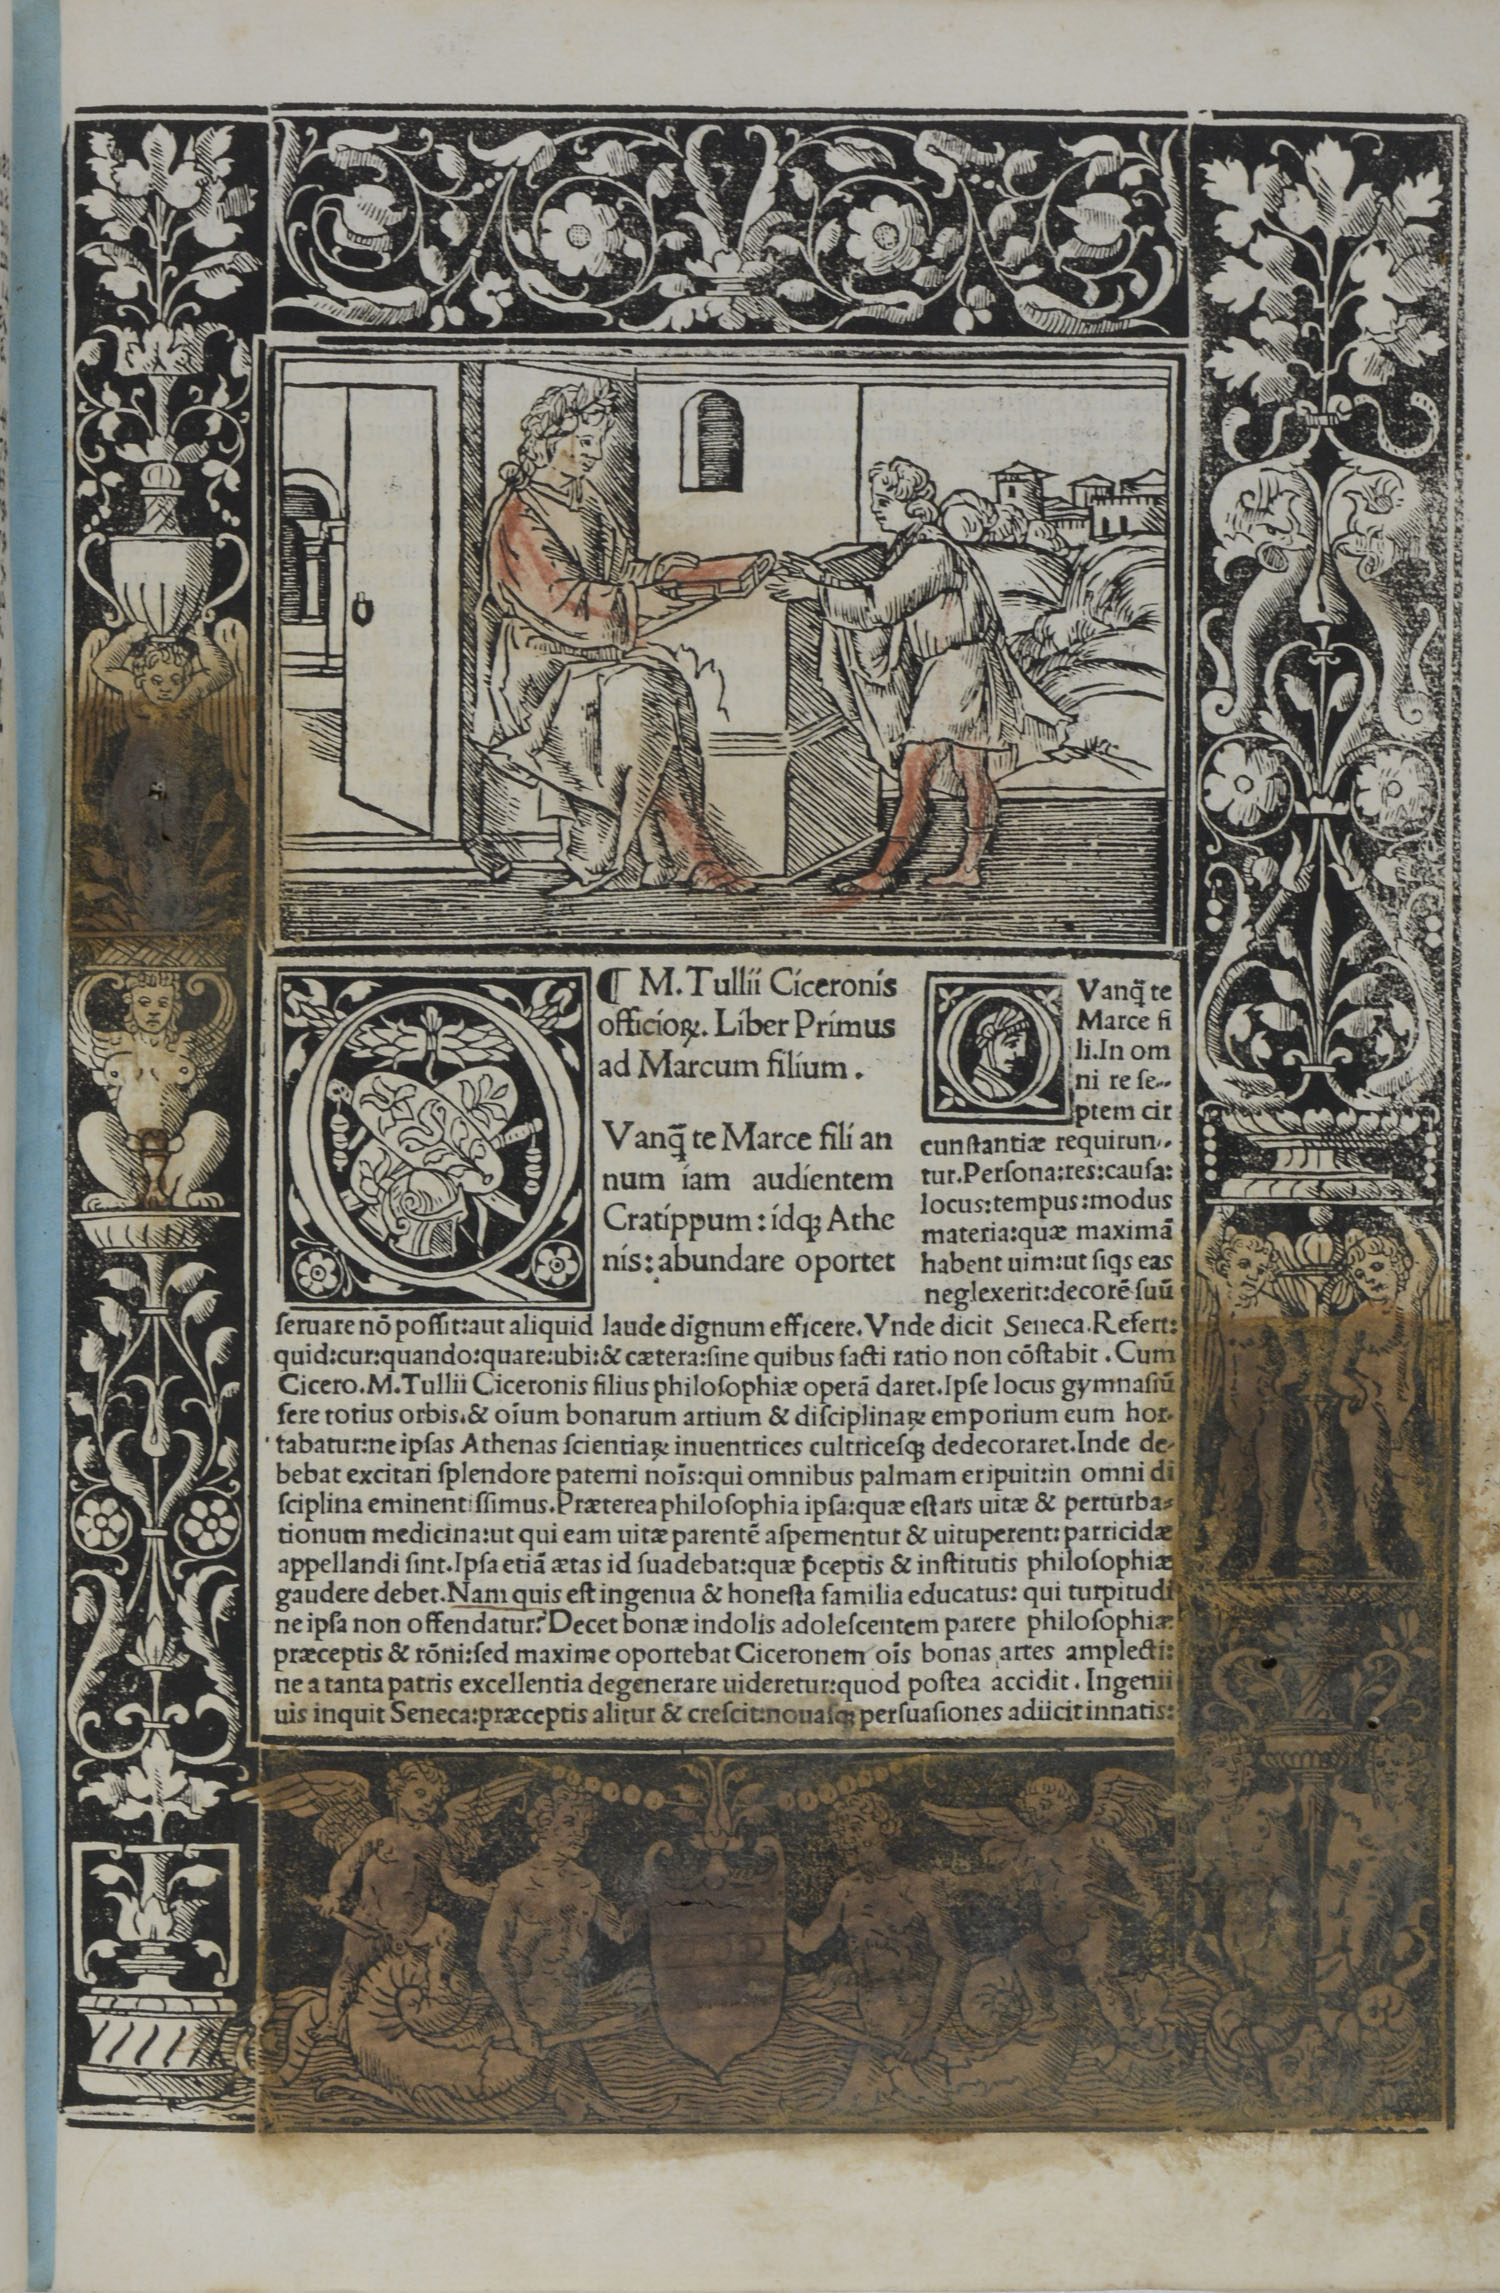 ¶ M. Tullii Ciceronis
officioꝝ. Liber Primus
ad Marcum filium.
Vanq̃ te Marce fili an
num iam audientem
Cratippum: idqꝫ Athe
nis: abundare oportet
Q
Vanq̃ te
Marce fi
li. In om
ni re se-
ptem cir
cunstantiæ requirun-
tur. Persona: res: causa:
locus: tempus: modus
materia: quæ maximã
habent uim: ut siqs eas
neglexerit: decorẽ suũ
seruare nõ possit: aut aliquid laude dignum efficere. Vnde dicit Seneca. Refert:
quid: cur: quando: quare: ubi: & cætera: sine quibus facti ratio non cõstabit. Cum
Cicero. M. Tullii Ciceronis filius philosophiæ operã daret. Ipse locus gymnasiũ
fere totius orbis. & oĩum bonarum artium & disciplinaꝝ emporium eum hor-
tabatur: ne ipsas Athenas scientiaꝝ inuentrices cultricesqꝫ dedecoraret. Inde de-
bebat excitari splendore paterni noĩs: qui omnibus palmam eripuit: in omni di
sciplina eminentissimus. Præterea philosophia ipsa: quæ est ars uitæ & perturba-
tionum medicina: ut qui eam uitæ parentẽ aspernentur & uituperent: parricidæ
appellandi sint. Ipsa etiã ætas id suadebat: quæ p̃ceptis & institutis philosophiæ
gaudere debet. Nam quis est ingenua & honesta familia educatus: qui turpitudi
ne ipsa non offendatur? Decet bonæ indolis adolescentem parere philosophiæ
præceptis & rõni: sed maxime oportebat Ciceronem oĩs bonas artes amplecti:
ne a tanta patris excellentia degenerare uideretur: quod postea accidit. Ingenii
uis inquit Seneca: præceptis alitur & crescit: nouasqꝫ persuasiones adiicit innatis: